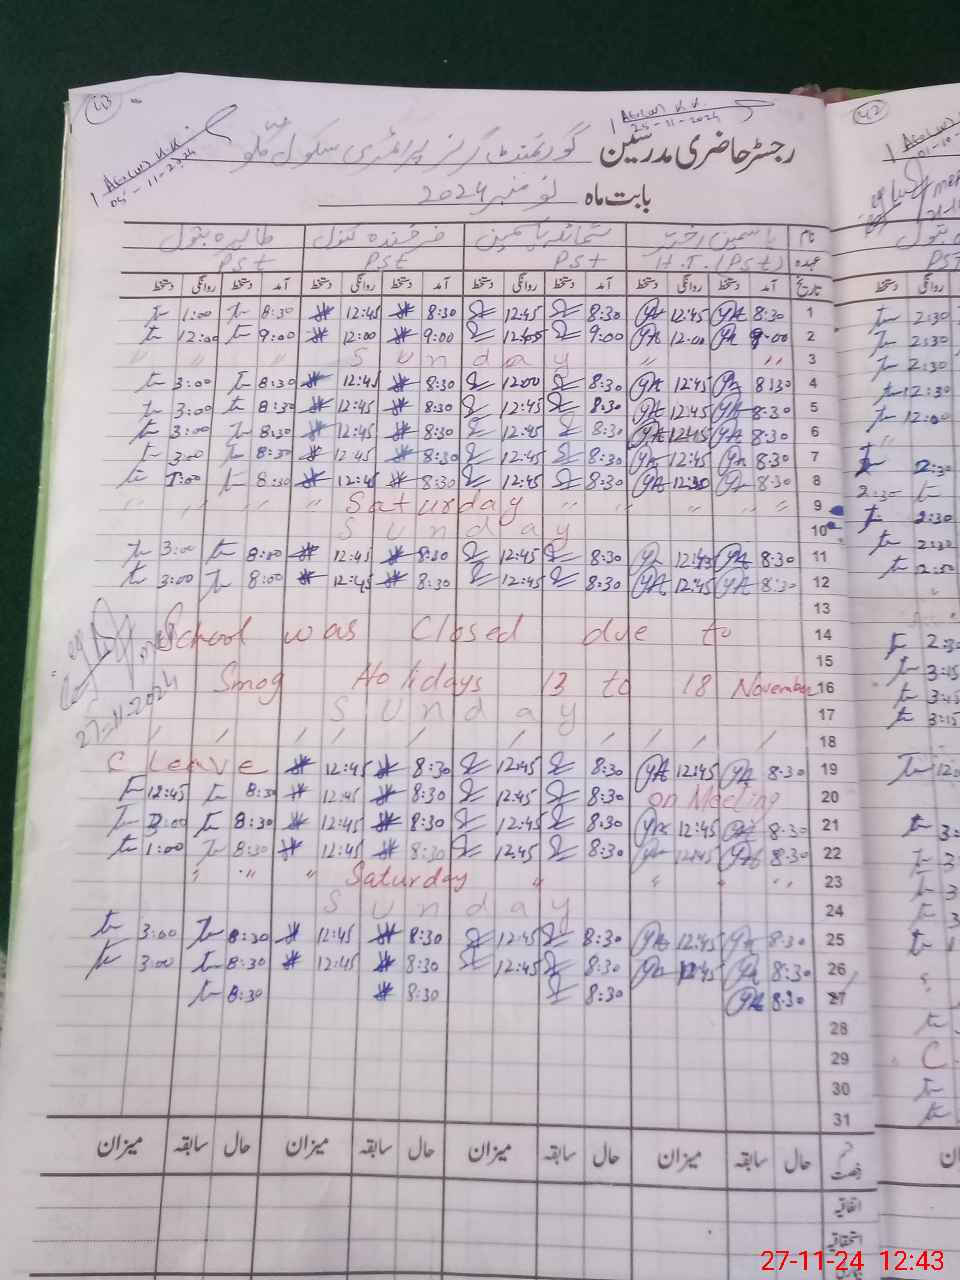 43
25-11-2024
42
رجسٹر حاضری مدرسین گورنمنٹ گرلز پرائمری سکول
05-11-2024
بابت ماہ نومبر 2024
نام یاسمین اختر شمائلہ یاسمین فرخندہ کنول طاہرہ بتول
عہدہ H.T.(PSt) PSt PSt PSt
تاریخ آمد دستخط روانگی دستخط آمد دستخط روانگی دستخط آمد دستخط روانگی دستخط آمد دستخط روانگی دستخط
1:00 8:30 12:45 8:30 12:45 8:30 12:45 8:30 1
12:00 9:00 12:00 9:00 9:00 12:00 9:00 2
" " " Sunday " " 3
3:00 8:30 12:45 8:30 12:00 8:30 12:45 8:30 4
3:00 8:30 12:45 8:30 12:45 8:30 12:45 8:30 5
3:00 8:30 12:45 8:30 12:45 8:30 12:45 8:30 6
3:00 8:30 12:45 8:30 12:45 8:30 12:45 8:30 7
1:00 8:30 12:45 8:30 12:45 8:30 12:30 8:30 8
" " " " Saturday " " " " 9
Sunday 10
3:00 8:00 12:45 8:30 12:45 8:30 12:45 8:30 11
3:00 8:00 12:45 8:30 12:45 8:30 12:45 8:30 12
13
School was Closed due to 14
15
Smog Holidays 13 to 18 November 16
27-11-2024
Sunday 17
18
C Leave 12:45 8:30 12:45 8:30 12:45 8:30 19
12:45 8:30 12:45 8:30 12:45 8:30 on Meeting 20
8:30 12:45 8:30 12:45 8:30 12:45 8:30 21
1:00 8:30 12:45 8:30 12:45 8:30 12:45 8:30 22
" " " Saturday " " " " 23
Sunday 24
3:00 8:30 12:45 8:30 12:45 8:30 12:45 8:30 25
3:00 8:30 12:45 8:30 12:45 8:30 12:45 8:30 26
8:30 8:30 8:30 8:30 27
28
29
30
31
حال سابقہ میزان حال سابقہ میزان حال سابقہ میزان حال سابقہ میزان
اتفاقیہ
استحقاقیہ
PST
2:30
2:30
2:30
12:30
12:00
2:30
2:30
2:30
2:30
2:30
2:30
3:15
3:45
3:15
C
27-11-24 12:43